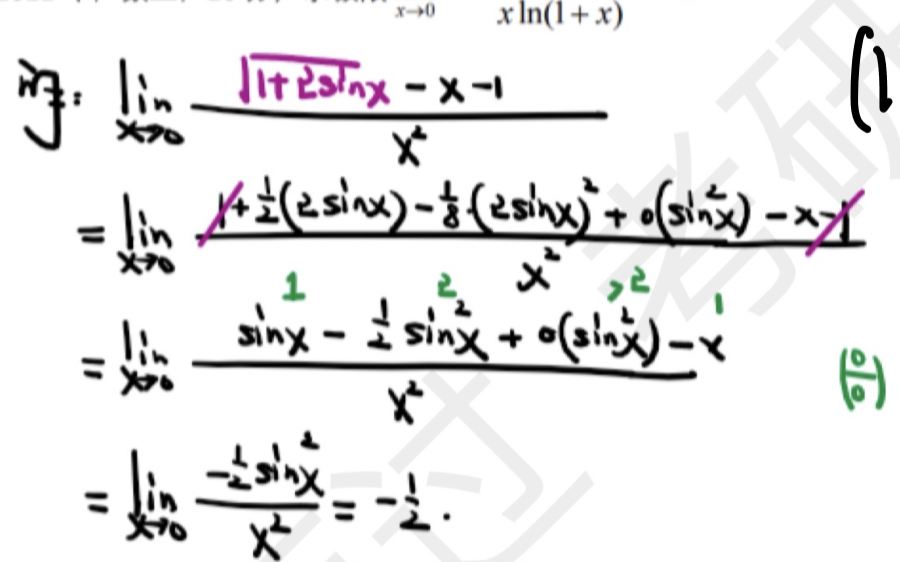 x→0 x ln(1+x)
解: lim x→0 (√(1+2sinx) - x - 1) / x² (1
= lim x→0 (1 + ½(2sinx) - ⅛·(2sinx)² + o(sin²x) - x - 1) / x²
1 2 >2 1
= lim x→0 (sinx - ½ sin²x + o(sin²x) - x) / x² (0/0)
= lim x→0 (-½ sin²x) / x² = -½.